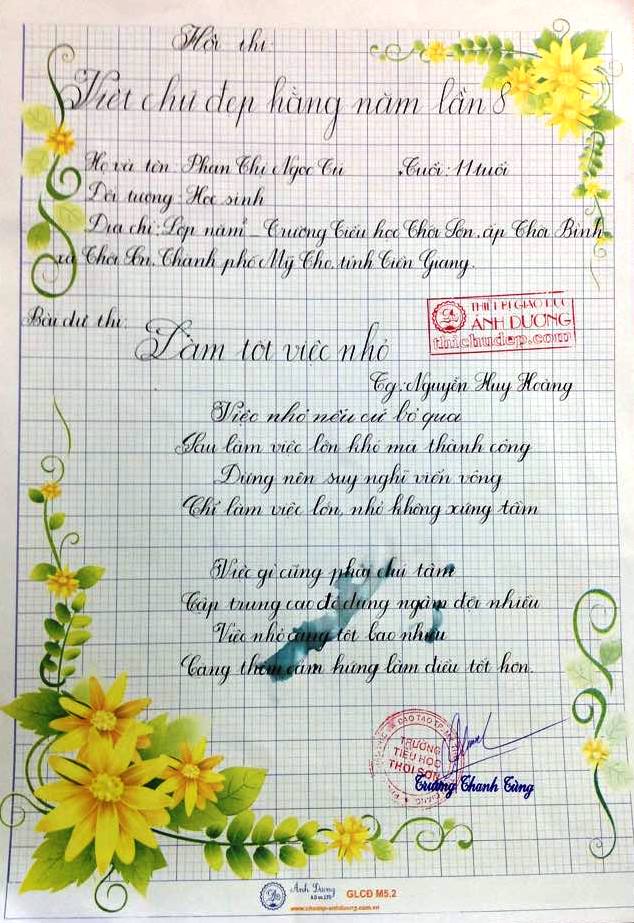 Hội thi:
Viết chữ đẹp hằng năm lần 8
Họ và tên: Phan Thị Ngọc Tú Tuổi: 11 tuổi
Đối tượng: Học sinh
Địa chỉ: Lớp năm² _ Trường Tiểu học Thới Sơn, ấp Thới Bình
xã Thới Sơn, Thành phố Mỹ Tho, tỉnh Tiền Giang.
THIẾT BỊ GIÁO DỤC
ÁNH DƯƠNG
thichudep.com
Bài dự thi:
Làm tốt việc nhỏ
Tg: Nguyễn Huy Hoàng
Việc nhỏ nếu cứ bỏ qua
Sau làm việc lớn khó mà thành công
Đừng nên suy nghĩ viển vông
Chỉ làm việc lớn, nhỏ không xứng tầm
Việc gì cũng phải chú tâm
Tập trung cao độ đừng ngàm đợi nhiều
Việc nhỏ càng tốt bao nhiêu
Càng thêm cảm hứng làm điều tốt hơn.
ĐÀO TẠO TP. MỸ
TRƯỜNG
TIỂU HỌC
THỚI SƠN
Trương Thanh Tùng
Ánh Dương
GLCĐ M5.2